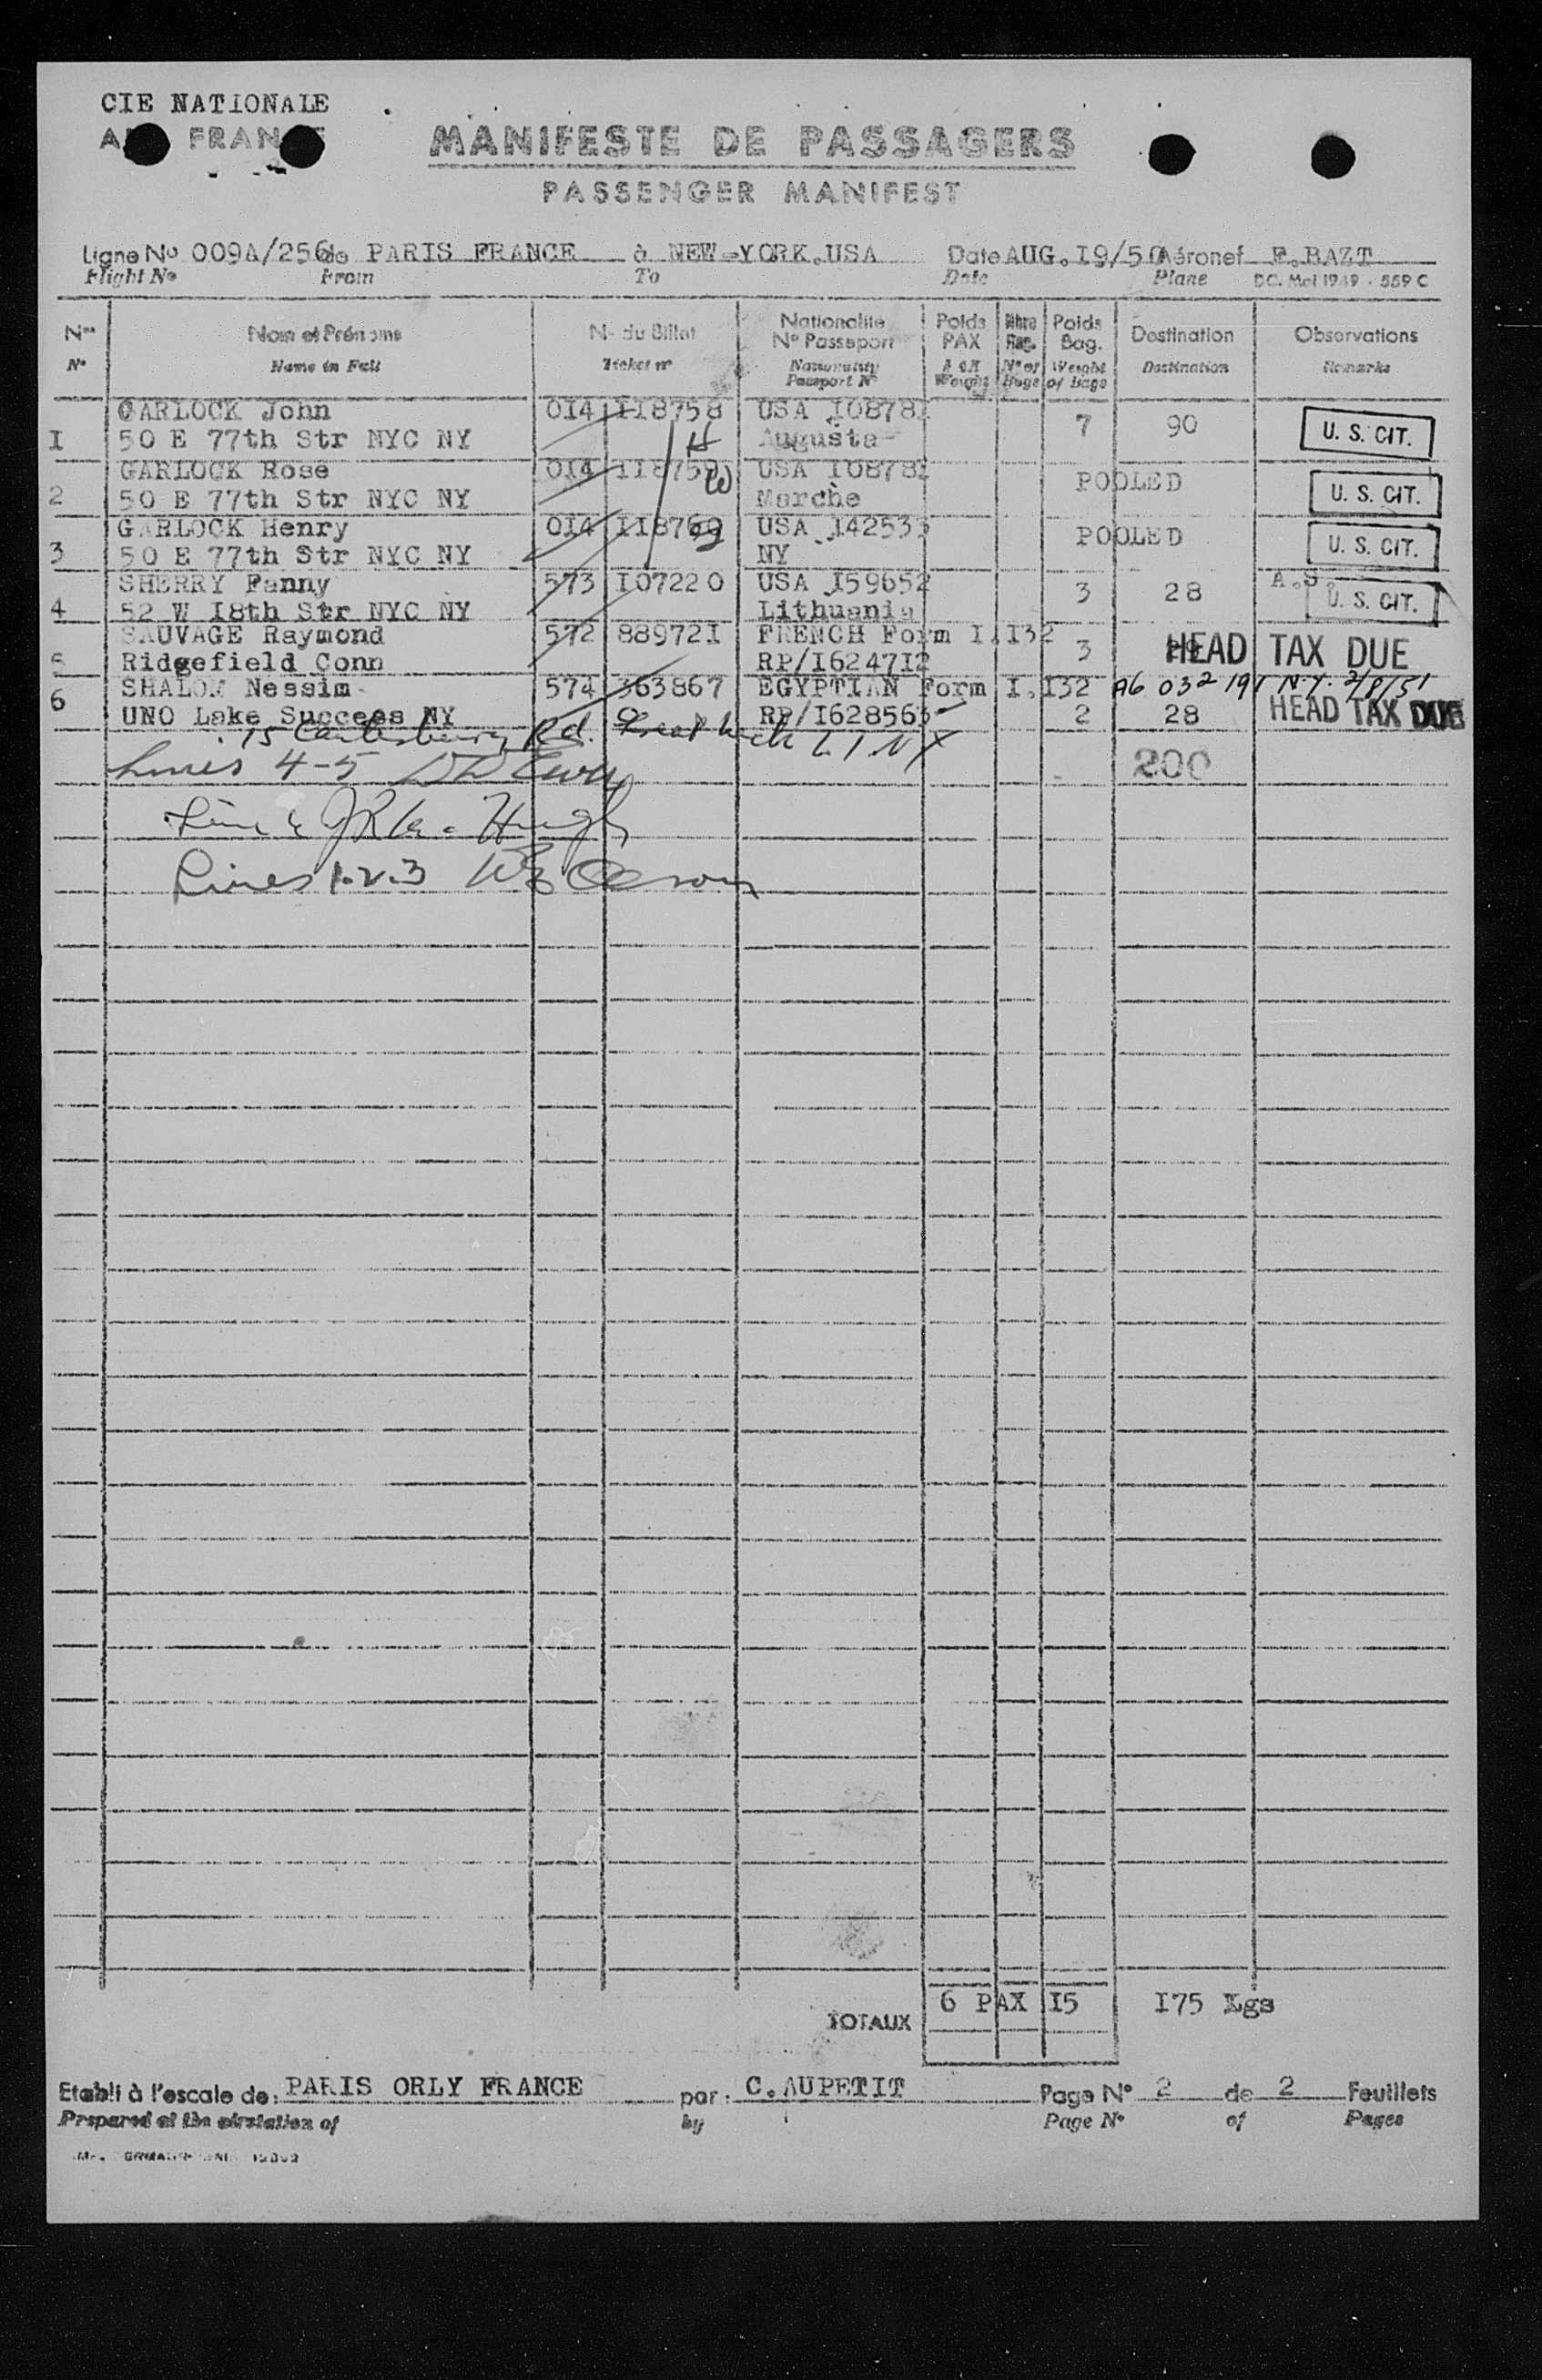 CIE NATIONALE
MANIFESTE DE PASSAGERS
PASSENGER MANIFEST
Ligne No 009A/256 de PARIS FRANCE à NEW-YORK.USA Date AUG.I9/50 Aéronef F.BAZT
Flight No From To Date Plane DC. Mel 1949 - 559 C
Nos Nom et Prénoms No du Billet Nationalité No Passeport Poids PAX Nbre Bag. Poids Bag. Destination Observations
No Name in Full Ticket no Nationality Passport No PAX Weight No of Bags Weight of Bags Destination Remarks
GARLOCK John 0I4 II8758 USA I0878I
I 50 E 77th Str NYC NY Augusta 7 90 U. S. CIT.
GARLOCK Rose 0I4 II8759 USA I0878I
2 50 E 77th Str NYC NY POOLED U. S. CIT.
GARLOCK Henry 0I4 USA I42533
3 50 E 77th Str NYC NY NY POOLED U. S. CIT.
SHERRY Fanny 573 I07220 USA I59652
4 52 W I8th Str NYC NY Lithuania 3 28 A.S. U. S. CIT.
SAUVAGE Raymond 572 88972I FRENCH Form I.I32
5 Ridgefield Conn RP/I6247I2 3 HEAD TAX DUE
SHALOM Nessim 574 363867 EGYPTIAN Form I.I32 A6 032 191 N.Y. 2/8/51
6 UNO Lake Success NY RP/I628563 2 28 HEAD TAX DUE
15 Rd. Great Neck L I N Y
Lines 4-5
200
Line 6
Lines 1.2.3
TOTAUX 6 PAX I5 I75 Kgs
Etabli à l'escale de: PARIS ORLY FRANCE par: C.AUPETIT Page No 2 de 2 Feuillets
Prepared at the airstation of by Page No of Pages